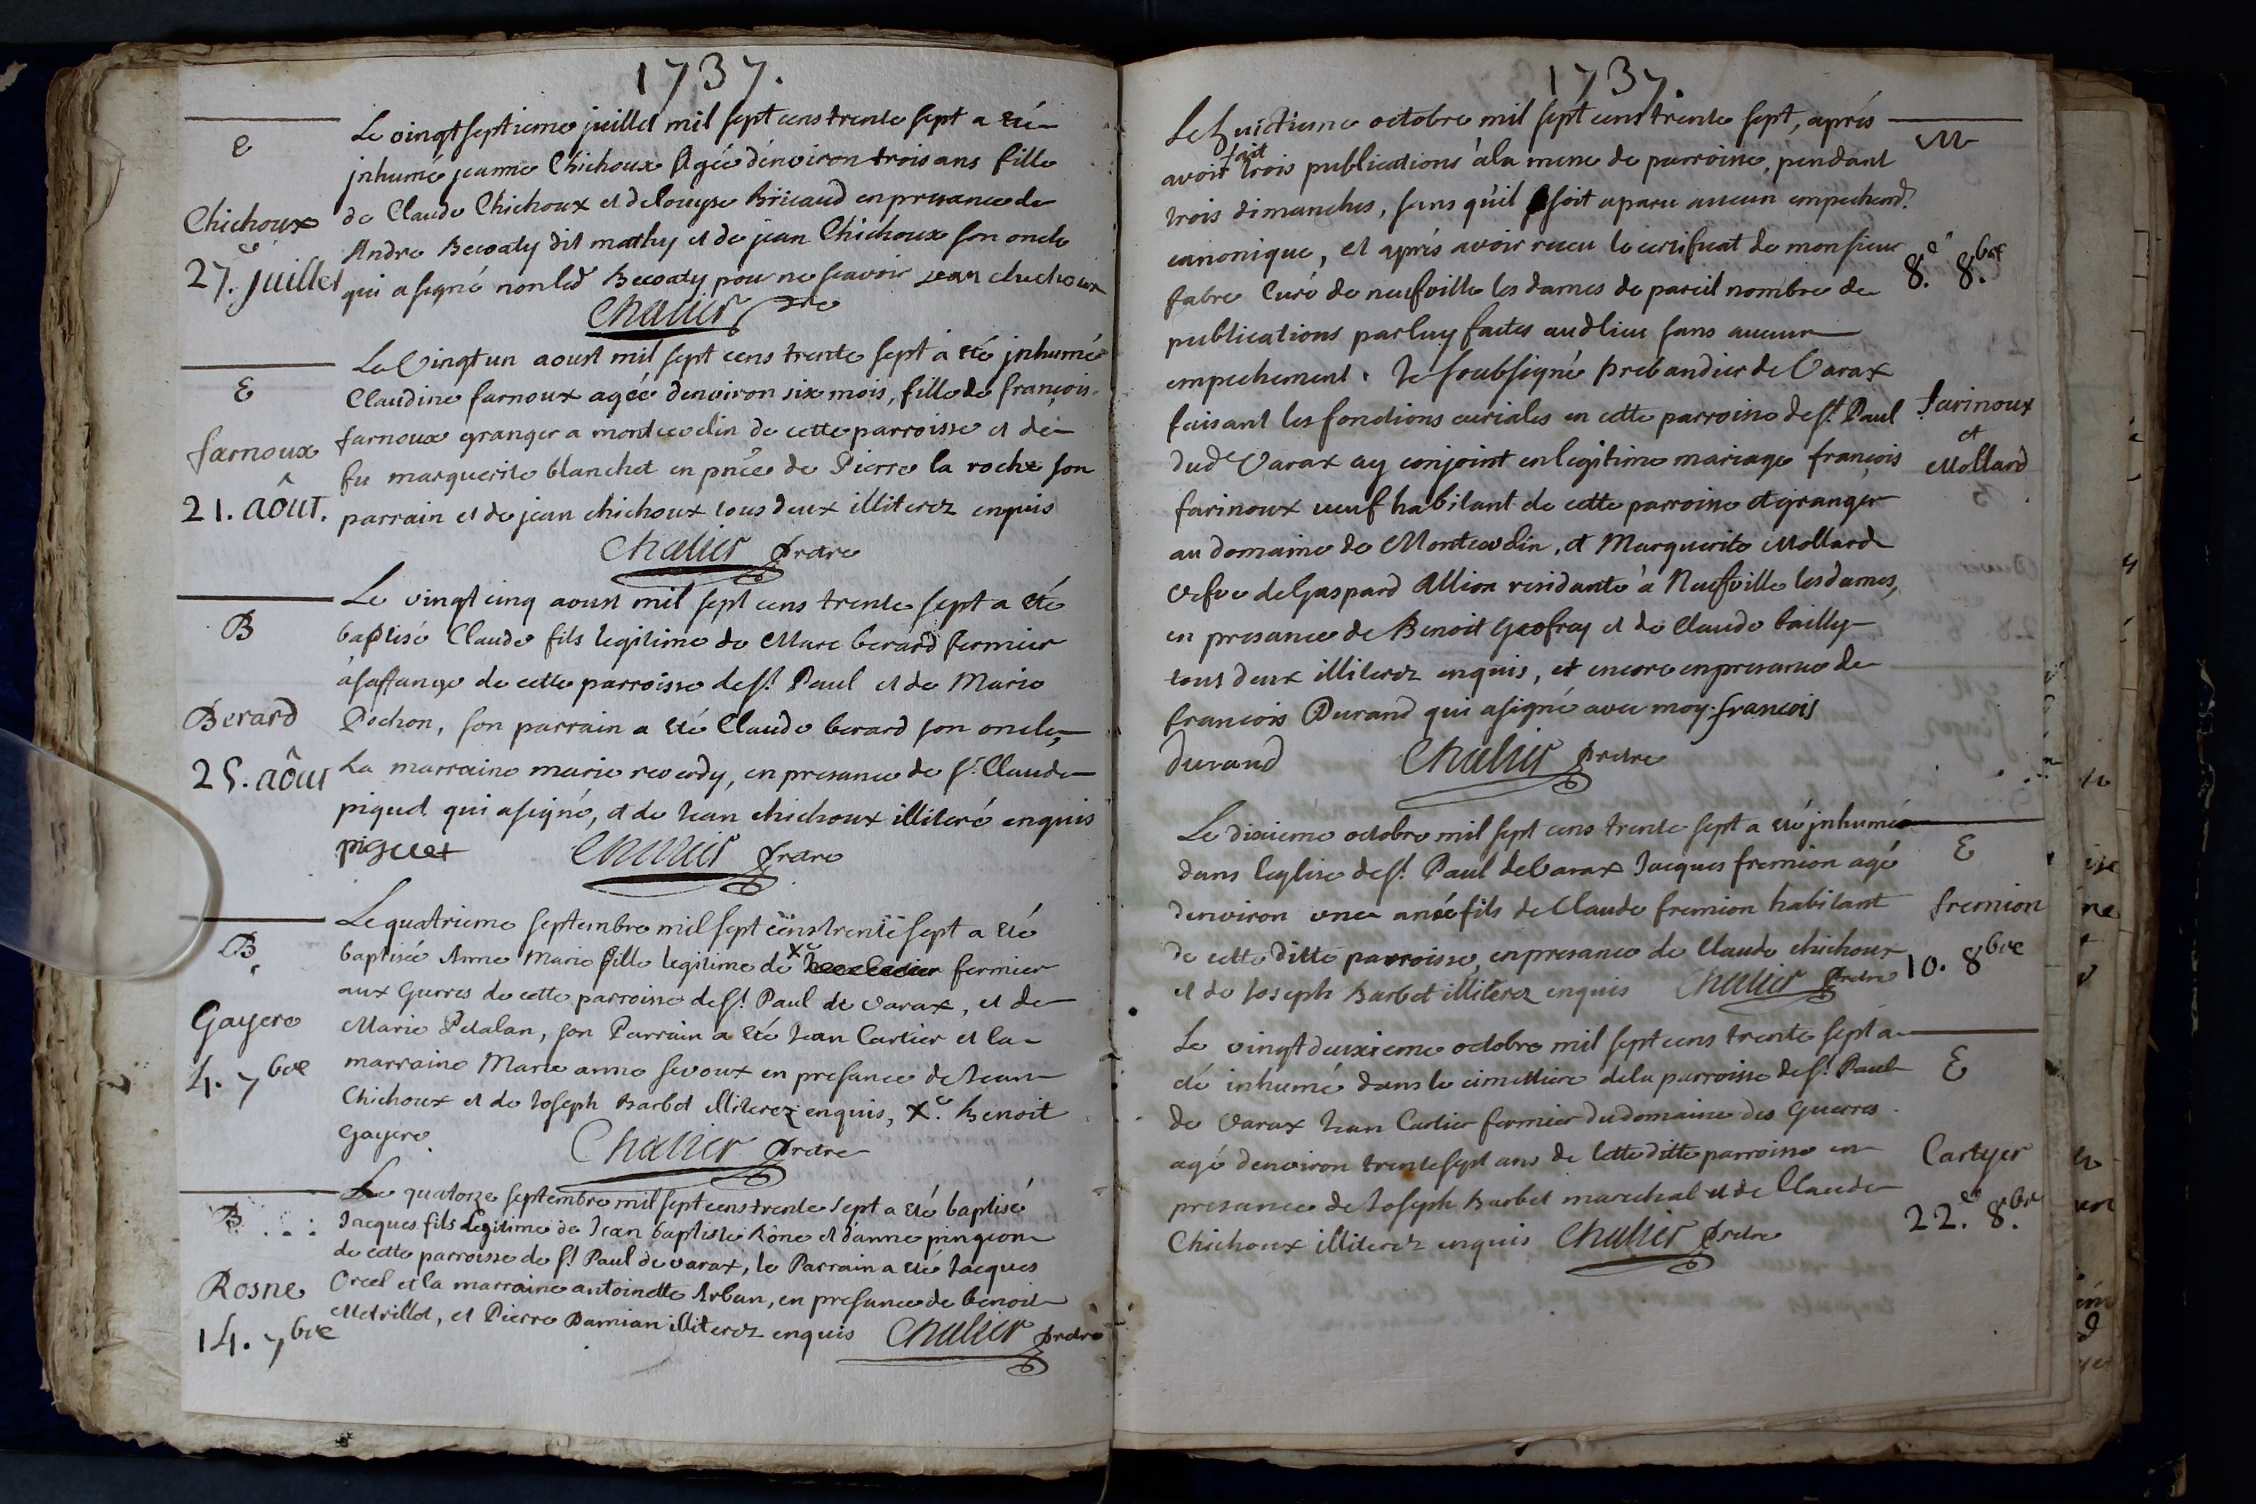 1737.
E
Chichoux
27.e juillet
Le vingt septieme juillet mil sept cens trente sept a eté
jnhumé jeanne Chichoux Agée d'environ trois ans fille
de Claude Chichoux et de louyse Bricaud en presance de
Andre Becoaty dit mathy et de jean Chichoux son oncle
qui a signé non led Becoaty pour ne scavoir jean chichoux
Chalier ptre
E
farnoux
21. aôut.
Le Vingt un aoust mil sept cens trente sept a eté jnhumé
Claudine farnoux agéé denviron six mois, fille de françois
farnoux granger a montcoelin de cette parroisse et de
fu marguerite blanchet en pnce de Pierre la roche son
parrain et de jean chichoux tous deux illiterez enquis
Chalier pretre
B
Berard
25. aôut
Le vingt cinq aoust mil sept cens trente sept a eté
baptisé Claude fils legitime de Marc berard fermier
à saffange de cette parroisse de St. Paul et de Marie
Pochon, son parrain a eté Claude berard son oncle,
La marraine marie reverdy, en presance de Sr. Claude
piquet qui a signé, et de Jean chichoux illiteré enquis
piguet Chalier pretre
B
Gayere
4. 7bre
Le quatrieme septembre mil sept cens trente sept a eté
baptisée Anne Marie fille legitime de X fermier
aux Guerres de cette parroisse de St. Paul de varax, et de
Marie Petalan, son Parrain a eté Jean Cartier et la
marraine Marie anne sevoux en presance de Jean
Chichoux et de Joseph Barbet illiterez enquis, X. Benoit
Gayere. Chalier pretre
B
Rosne
14. 7bre
Le quatorze septembre mil sept cens trente sept a eté baptisé
Jacques fils Legitime de Jean baptiste Rône et d'anne pingeon
de cette parroisse de St Paul de varax, le Parrain a eté Jacques
Orcel et la marraine antoinette Arban, en presance de benoit
Metrillot, et Pierre Damian illiterez enquis Chalier pretre
1737.
Le huictieme octobre mil sept cens trente sept, aprés
avoir fait trois publications à la messe de parroisse, pendant
trois dimanches, sans qu'il soit aparu aucun empechemt.
canonique, et aprés avoir receu le certificat de monsieur
fabre Curé de neufville les dames de pareil nombre de
publications par luy faites audlieu sans aucun
empechement. Je soubsigné Prebandier de Varax
faisant les fonctions curiales en cette parroisse de St. Paul
dud Varax ay conjoint en legitime mariage françois
farinoux veuf habitant de cette parroisse et granger
au domaine de Montcoelin, et Marguerite Mollard
vefve de Gaspard Allion residante à Neufville les dames,
en presance de Benoit Geofrey et de Claude bailly
tous deux illiterez enquis, et encore en presance de
francois Durand qui a signé avec moy. francois
durand Chalier pretre
M
8.e 8.bre
farinoux
et
Mollard
Le dixieme octobre mil sept cens trente sept a eté jnhumé
dans leglise de St. Paul de Varax Jacques fremion agé
denviron une année fils de Claude fremion habitant
de cette ditte parroisse, en presance de Claude chichoux
et de Joseph Barbet illiterez enquis Chalier pretre
E
fremion
10. 8bre
Le vingt deuxieme octobre mil sept cens trente sept a
eté inhumé dans le cimettiere de la parroisse de St. Paul
de Varax Jean Cartier fermier du domaine des Guerres
agé denviron trente sept ans de cette ditte parroisse en
presance de Joseph Barbet marechal et de Claude
Chichoux illiterez enquis Chalier pretre
E
Cartyer
22.e 8.bre